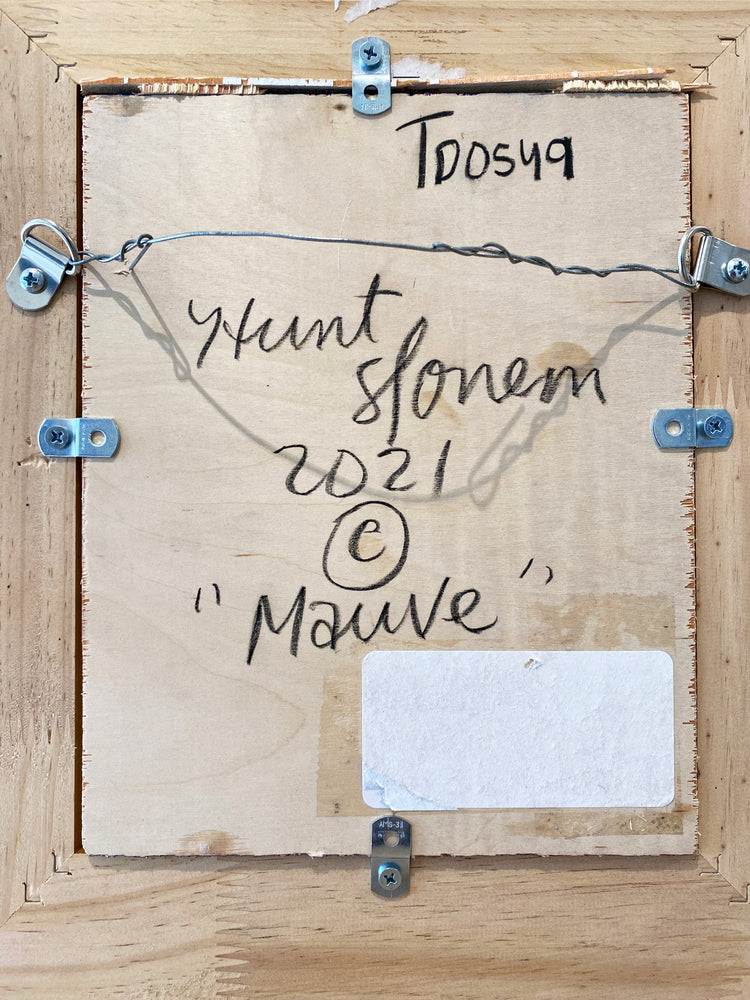 TD0549
Hunt
slonem
2021
©
"Mauve"